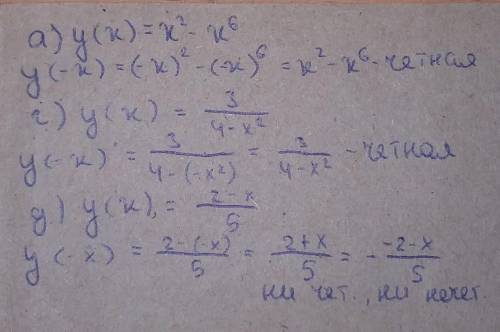 а) y(x) = x² - x⁶
y(-x) = (-x)² - (-x)⁶ = x² - x⁶ - четная
г) y(x) = 3/(4-x²)
y(-x) = 3/(4-(-x²)) = 3/(4-x²) - четная
д) y(x) = (2-x)/5
y(-x) = (2-(-x))/5 = (2+x)/5 = - (-2-x)/5
ни чет., ни нечет.